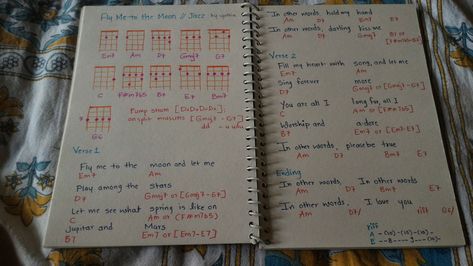 Fly Me to the Moon // Jazz by cynthia
Em7 Am D7 Gmaj7 G7
C F#m7b5 B7 E7 Bm7
Pump strum [DuDuDuDu];
except measures [Gmaj7 - G7]
G6
dd - udu
Verse 1
Fly me to the moon and let me
Em7 Am
Play among the stars
D7 Gmaj7 or [Gmaj7-G7]
Let me see what spring is like on
C Am or (F#m7b5)
Jupitar and Mars
B7 Em7 or [Em7-E7]
In other words hold my hand
Am D7 B7 E7
In other words, darling kiss me
Am D7 Gmaj7 or B7
Verse 2
Fill my heart with song, and let me
Em7 Am
Sing forever more
D7 Gmaj7 or [Gmaj7-G7]
You are all I long for, all I
C Am or [F#m7b5]
Worship and adore
B7 Em7 or [Em7-E7]
In other words, please be true
Am D7 Bm7 E7
Ending
In other words, In other words
Am D7 Bm7 E7
In other words, I love you
Am D7/ riff G6/
riff
A
E